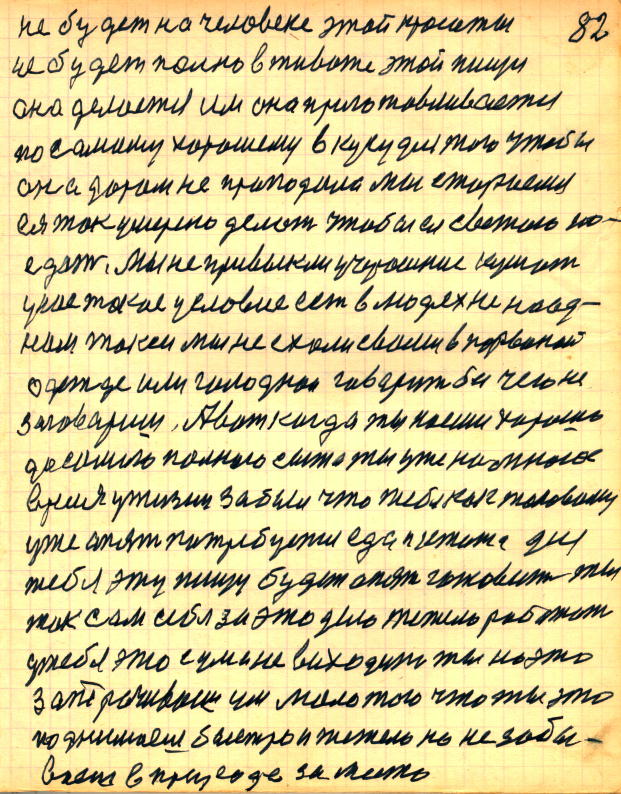 не будет на человеке этой красоты 82
не будет полно в животе этой пищи
она делается им она приготовливается
по самому хорошему вкусу для того чтобы
она даром не пропадала мы стараемся
ся так умерено делат чтобы ся светого по-
едат. Мы не привыкли хорошие кушат
у нас такое условие сет в людях не на од-
ном такси мы не ехали своей порваной
одежде или голодная говарит бы чего не
заговариш, А вот когда ты поеш хорошо
до самого полного сыта ты уже на много
время у жизни забыл что тебе как таковому
уже опят потребуется еда
тебя эту пищу будет опят готовит ты
так сам себя за это дело тежело работат
у тебя это с ума не выходит ты на это
затрачиваеш ум мало того что ты это
поднимаеш быстро и тежело но не забы-
ваеш в природе за